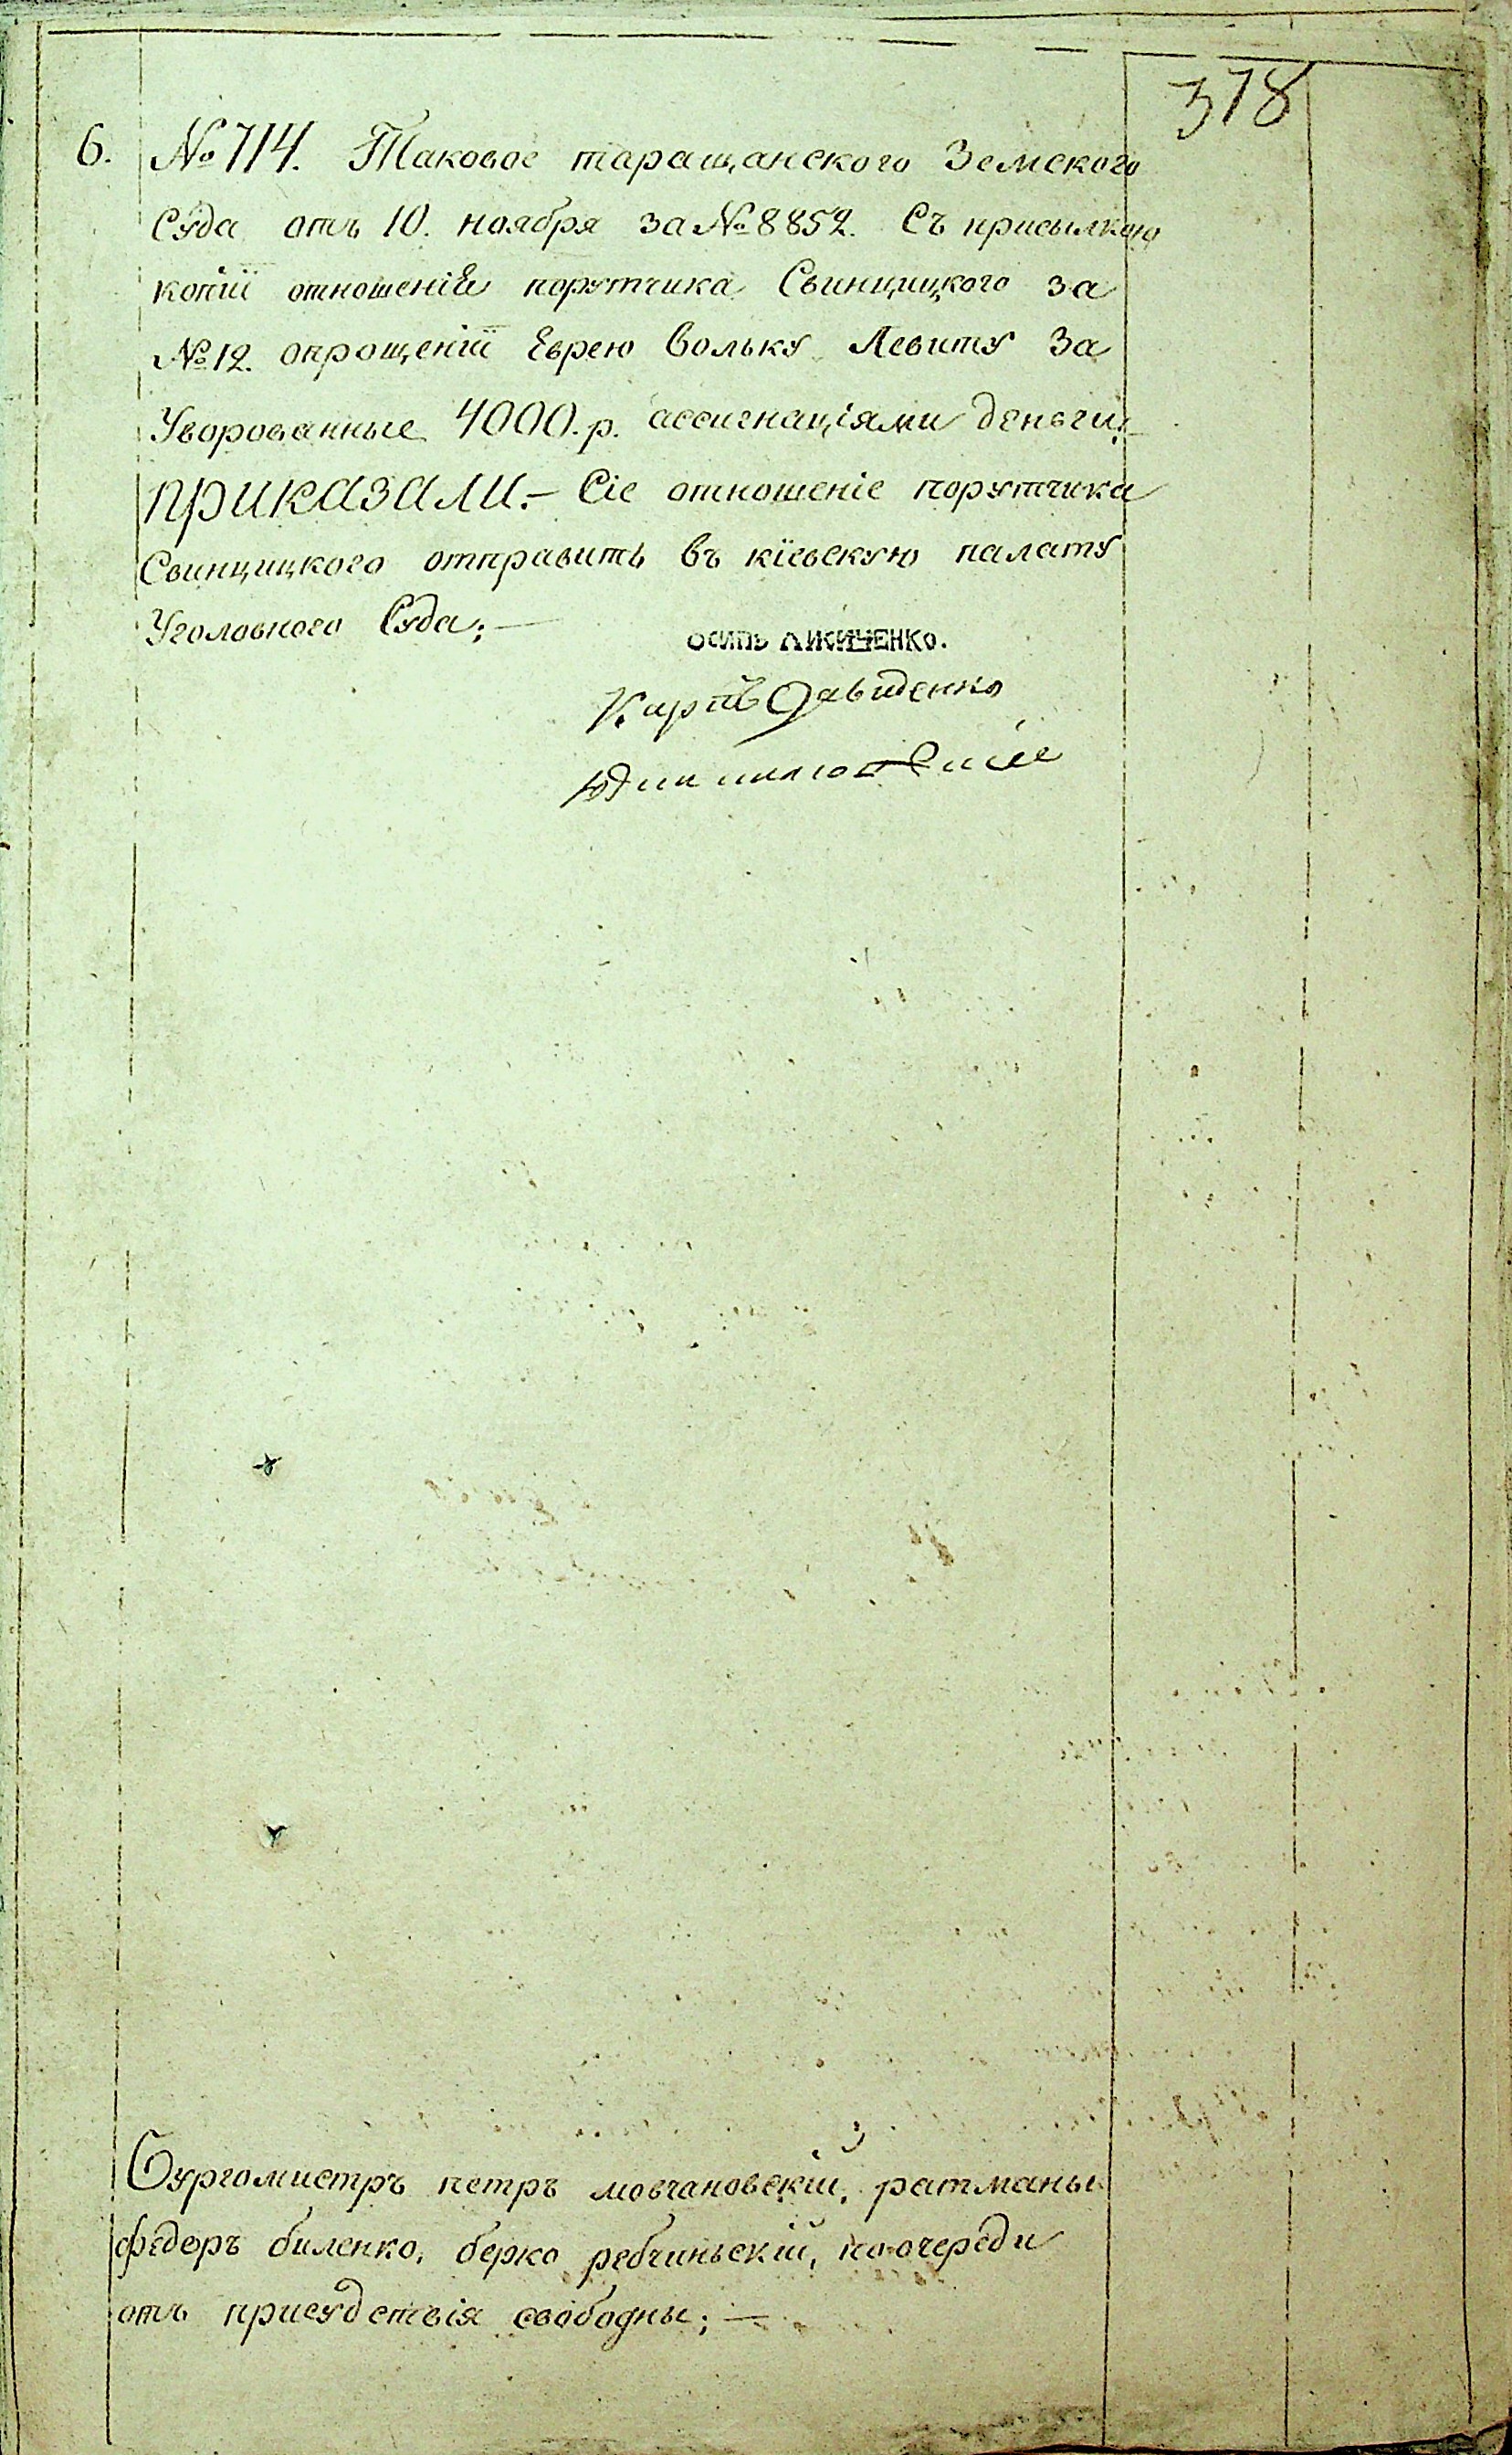 378
6. № 714. Таковое таращанского Земского
Суда отъ 10. ноября за № 8852. Съ присылкою
копіи отношеніе порутчика Свинцицкого за
№ 12. опрощеніи Еврею Вольку Левиту За
Уворованные 4000. р. ассигнаціями деньги;
ПРИКАЗАЛИ.— Сіе отношеніе порутчика
Свинцицкого отправить въ кіевскую палату
Уголовного Суда; —
Осипъ
Карпъ Давиденко
Бургомистръ петръ мовчановскій, ратманы
федоръ биленко, берко ребчиньскій, по очереди
отъ присудствія свободны; —